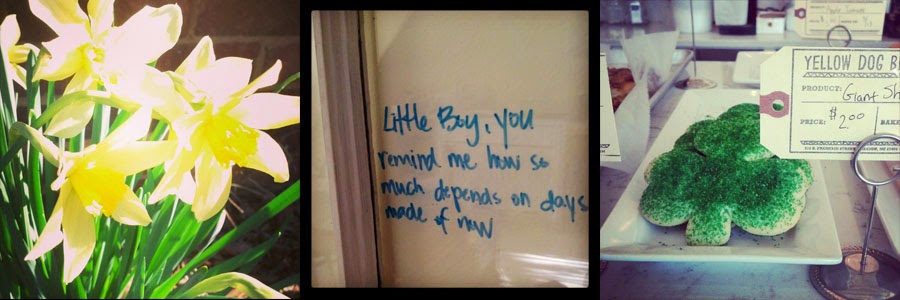 Little Boy, you
remind me how so
much depends on days
made of now
Apple Turnover
YELLOW DOG B
PRODUCT: Giant Sh
PRICE: $2.00 BAKE